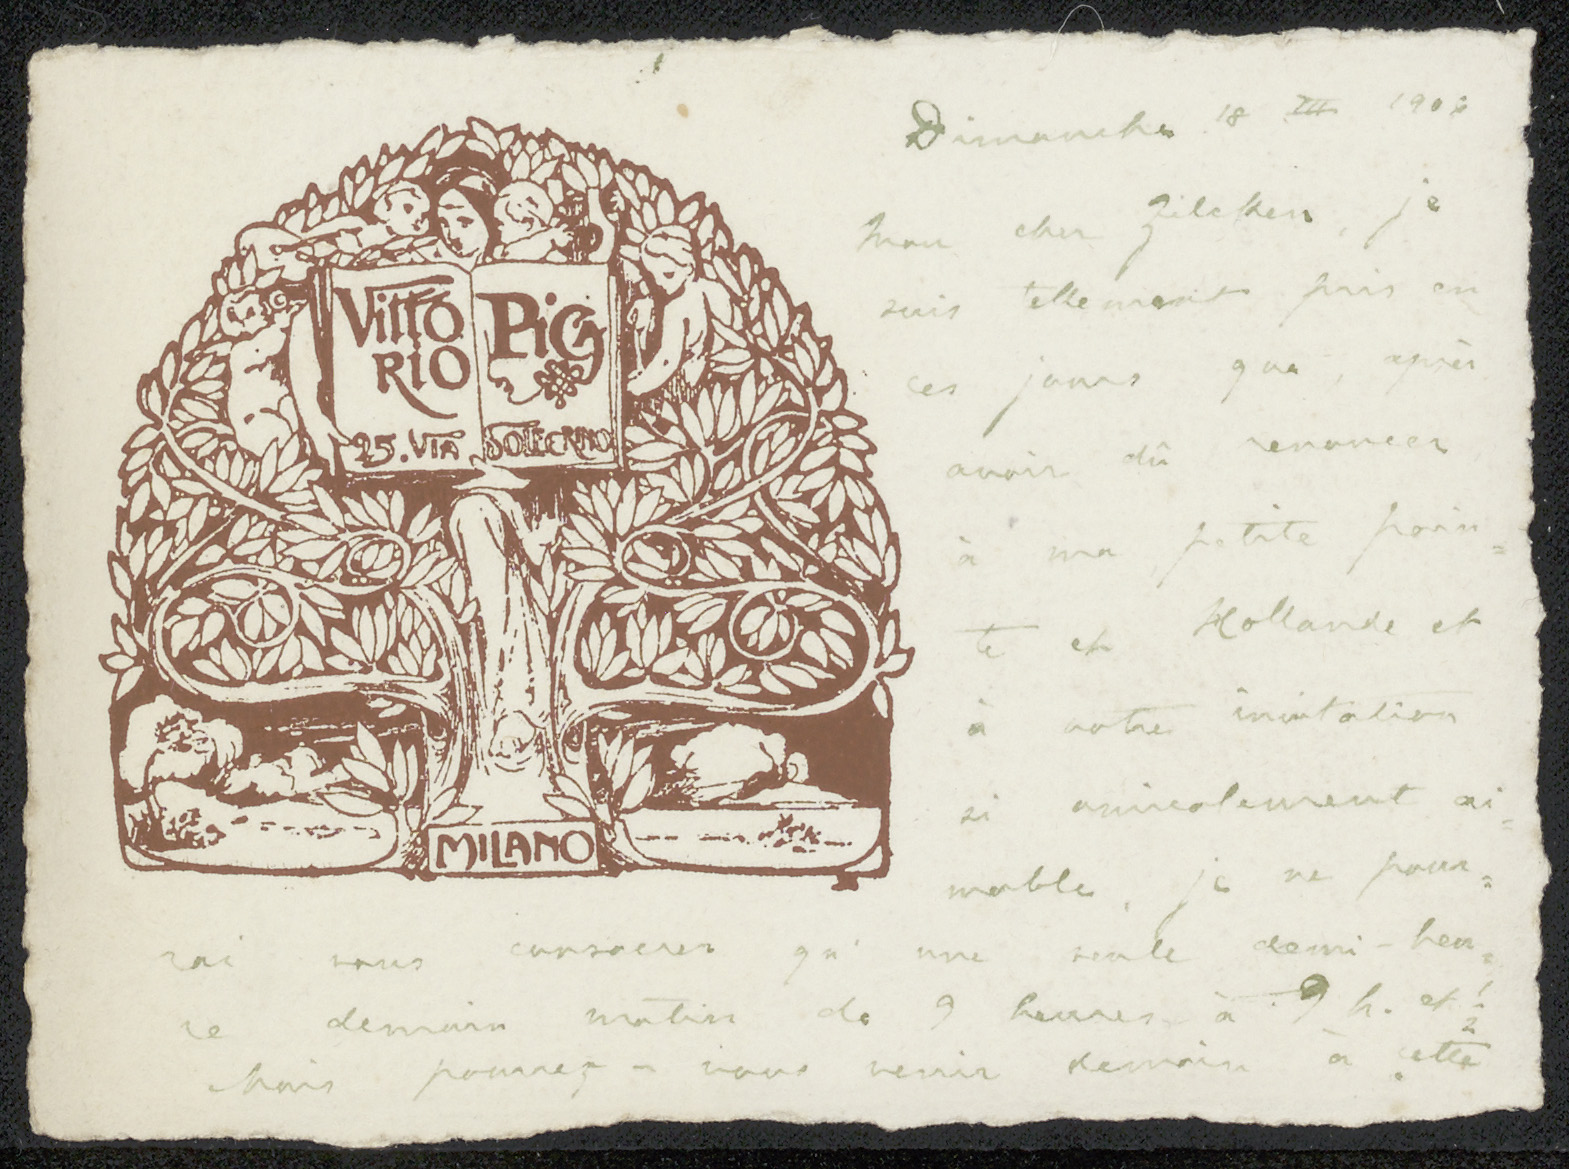 VITTO
RIO
PICA
25. VIA SOLFERINO
MILANO
Dimanche 18 III 1906
Mon cher Zilcken, je
suis tellement pris en
ces jours que, après
avoir dû renoncer
à ma petite poin=
te en Hollande et
à votre invitation
si amicalement ai=
mable, je ne pour=
rai vous consacrer qu'une seule demi-heu=
re demain matin de 9 heures à 9 h. et ½
Mais pourrez-vous venir demain à cette